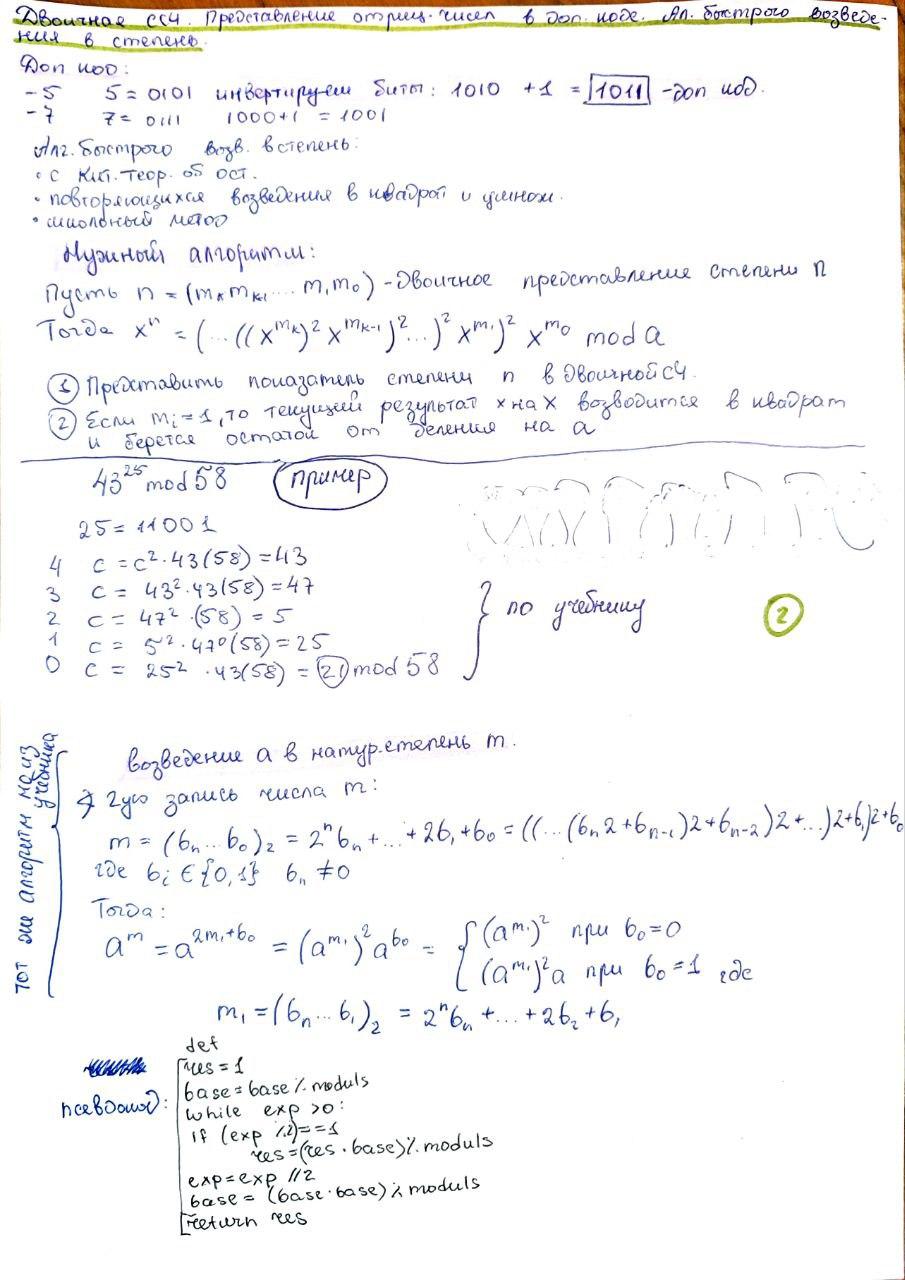 Двоичная ССЧ. Представление отриц. чисел в доп. коде. Ал. быстрого возведе-
ния в степень.
Доп код:
-5 5 = 0101 инвертируем биты: 1010 +1 = 1011 - доп код.
-7 7 = 0111 1000+1 = 1001
Алг. быстрого возв. в степень:
• с Кит. теор. об ост.
• повторяющихся возведения в квадрат и умнож.
• школьный метод
Нужный алгоритм:
Пусть n = (m_k m_{k-1} ... m_1 m_0) - двоичное представление степени n
Тогда x^n = (...((x^{m_k})^2 x^{m_{k-1}})^2...)^2 x^{m_1})^2 x^{m_0} mod a
① Представить показатель степени n в двоичной СЧ.
② Если m_i = 1, то текущий результат x на x возводится в квадрат
и берется остаток от деления на a
43^25 mod 58 пример
25 = 11001
4 c = c^2·43(58) = 43
3 c = 43^2·43(58) = 47
2 c = 47^2·(58) = 5
1 c = 5^2·47^0(58) = 25
0 c = 25^2·43(58) = 21 mod 58
} по учебнику
②
тот же алгоритм из
учебника
возведение a в натур. степень m.
2ую запись числа m:
m = (b_n...b_0)_2 = 2^n b_n + ... + 2b_1 + b_0 = ((...(b_n 2 + b_{n-1})2 + b_{n-2})2 + ...)2 + b_1)2 + b_0
где b_i ∈ {0,1} b_n ≠ 0
Тогда:
a^m = a^{2m_1+b_0} = (a^{m_1})^2 a^{b_0} = { (a^{m_1})^2 при b_0 = 0
(a^{m_1})^2 a при b_0 = 1 где
m_1 = (b_n...b_1)_2 = 2^n b_n + ... + 2b_2 + b_1
псевдокод:
def
res = 1
base = base % moduls
while exp > 0:
if (exp % 2) == 1
res = (res · base) % moduls
exp = exp // 2
base = (base · base) % moduls
return res